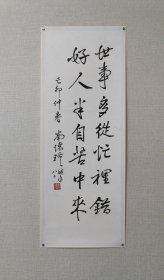 世事多從忙裡錯
好人半自苦中來
己卯仲春